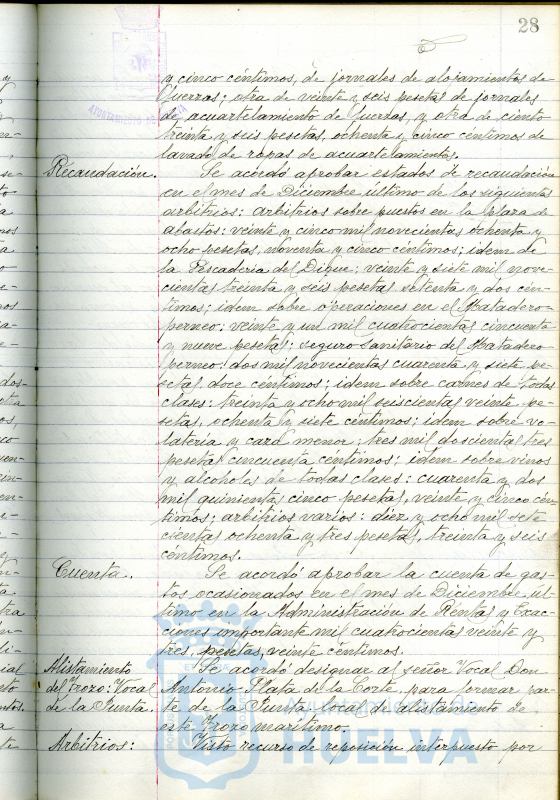 28
y cinco céntimos, de jornales de alojamientos de
fuerzas; otra de veinte y seis pesetas de jornales
de acuartelamiento de fuerzas, y otra de ciento
treinta y seis pesetas, ochenta y cinco céntimos de
lavado de ropas de acuartelamientos.
Recaudación. Se acordó aprobar estados de recaudación
en el mes de Diciembre último de los siguientes
arbitrios: arbitrios sobre puestos en la Plaza de
abastos: veinte y cinco mil novecientas ochenta y
ocho pesetas, noventa y cinco céntimos; idem de
la Pescaderia del Dique: veinte y siete mil nove-
cientas treinta y seis pesetas setenta y dos cén-
timos; idem sobre operaciones en el Matadero-
perneo: veinte y un mil cuatrocientas cincuenta
y nueve pesetas; seguro sanitario del Matadero
perneo: dos mil novecientas cuarenta y siete pe-
setas doce céntimos; idem sobre carnes de todas
clases: treinta y ocho mil seiscientas veinte pe-
setas, ochenta y siete céntimos: idem sobre vo-
lateria y caza menor: tres mil doscientas tres
pesetas cincuenta céntimos; idem sobre vinos
y alcoholes de todas clases: cuarenta y dos
mil quinientas cinco pesetas, veinte y cinco cén-
timos; arbitrios varios: diez y ocho mil sete
cientas ochenta y tres pesetas, treinta y seis
céntimos.
Cuenta. Se acordó aprobar la cuenta de gas-
tos ocasionados en el mes de Diciembre, úl-
timo en la Administración de Rentas y Exac-
ciones importante mil cuatrocientas veinte y
tres, pesetas, veinte céntimos.
Alistamiento Se acordó designar al señor Vocal Don
del Trozo: Vocal Antonio Plata de la Corte, para formar par-
de la Junta. te de la Junta local de alistamiento de
este Trozo maritimo.
Arbitrios: Visto recurso de reposición interpuesto por
HUELVA